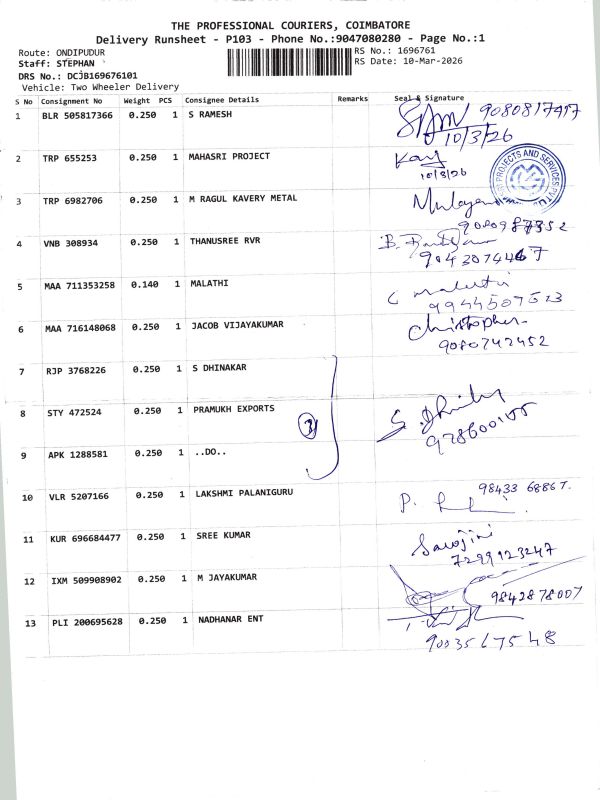 THE PROFESSIONAL COURIERS, COIMBATORE
Delivery Runsheet - P103 - Phone No.:9047080280 - Page No.:1
Route: ONDIPUDUR
Staff: STEPHAN
DRS No.: DCJB169676101
Vehicle: Two Wheeler Delivery
RS No.: 1696761
RS Date: 10-Mar-2026
S No Consignment No Weight PCS Consignee Details Remarks Seal & Signature
1 BLR 505817366 0.250 1 S RAMESH
10/3/26
2 TRP 655253 0.250 1 MAHASRI PROJECT
10/3/26
PROJECTS AND SERVICES
3 TRP 6982706 0.250 1 M RAGUL KAVERY METAL
4 VNB 308934 0.250 1 THANUSREE RVR
5 MAA 711353258 0.140 1 MALATHI
6 MAA 716148068 0.250 1 JACOB VIJAYAKUMAR Christopher
9080742452
7 RJP 3768226 0.250 1 S DHINAKAR
8 STY 472524 0.250 1 PRAMUKH EXPORTS 3
9 APK 1288581 0.250 1 ..DO..
10 VLR 5207166 0.250 1 LAKSHMI PALANIGURU 98433 68867.
11 KUR 696684477 0.250 1 SREE KUMAR Sarojini
7299123247
12 IXM 509908902 0.250 1 M JAYAKUMAR 9842878007
13 PLI 200695628 0.250 1 NADHANAR ENT
9003567548